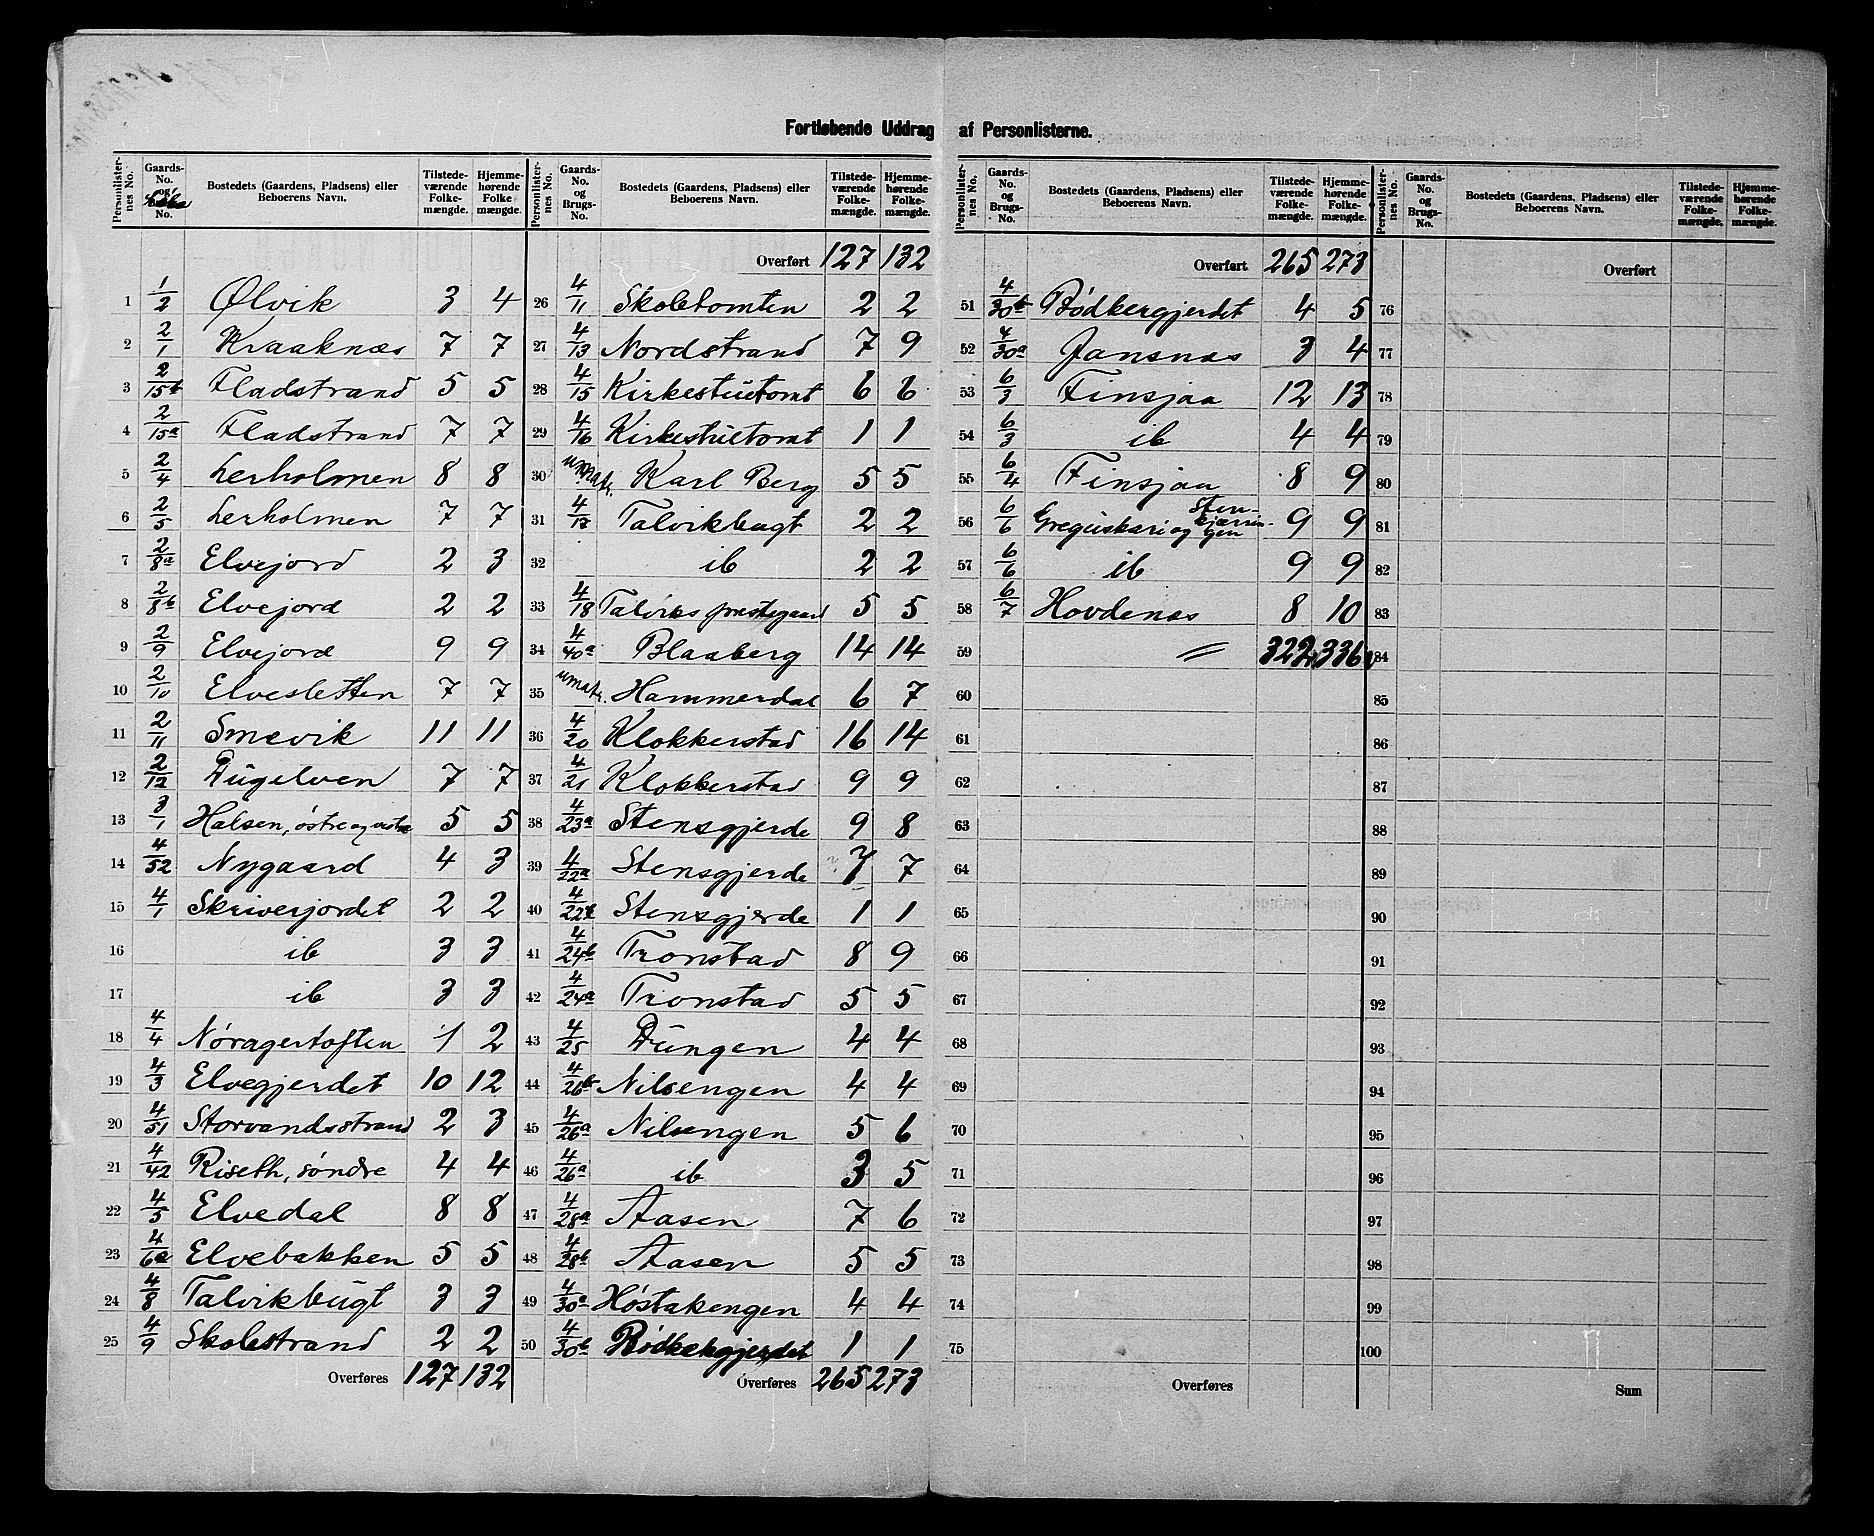 Fortløbende Uddrag af Personlisterne.
Personlister-nes No. | Gaards-No. og No. | Bostedets (Gaardens, Pladsens) eller Beboerens Navn. | Tilstede-værende Folke-mængde. | Hjemme-hørende Folke-mængde.
1 | 1/2 | Ølvik | 3 | 4
2 | 2/1 | Kraaknæs | 7 | 7
3 | 2/15b | Fladstrand | 5 | 5
4 | 2/15a | Fladstrand | 7 | 7
5 | 2/4 | Lerholmen | 8 | 8
6 | 2/5 | Lerholmen | 7 | 7
7 | 2/8a | Elvejord | 2 | 3
8 | 2/8b | Elvejord | 2 | 2
9 | 2/9 | Elvejord | 9 | 9
10 | 2/10 | Elvesletten | 7 | 7
11 | 2/11 | Smevik | 11 | 11
12 | 2/12 | Dugelven | 7 | 7
13 | 3/1 | Halsen, østre og vestre | 5 | 5
14 | 4/52 | Nygaard | 4 | 3
15 | 4/1 | Skriverjordet | 2 | 2
16 | ib | 3 | 3
17 | ib | 3 | 3
18 | 4/4 | Nøragertoften | 1 | 2
19 | 4/3 | Elvegjerdet | 10 | 12
20 | 4/51 | Storvandsstrand | 2 | 3
21 | 4/42 | Riseth, søndre | 4 | 4
22 | 4/5 | Elvedal | 8 | 8
23 | 4/6a | Elvebakken | 5 | 5
24 | 4/8 | Talvikbugt | 3 | 3
25 | 4/9 | Skolestrand | 2 | 2
Overføres | 127 | 132
Personlister-nes No. | Gaards-No. og Brugs-No. | Bostedets (Gaardens, Pladsens) eller Beboerens Navn. | Tilstede-værende Folke-mængde. | Hjemme-hørende Folke-mængde.
Overført | 127 | 132
26 | 4/11 | Skoletomten | 2 | 2
27 | 4/13 | Nordstrand | 7 | 9
28 | 4/15 | Kirkestuetomt | 6 | 6
29 | 4/16 | Kirkestuetomt | 1 | 1
30 | umatr. | Karl Berg | 5 | 5
31 | 4/17 | Talvikbugt | 2 | 2
32 | ib | 2 | 2
33 | 4/18 | Talviks prestegaard | 5 | 5
34 | 4/40a | Blaaberg | 14 | 14
35 | umatr. | Hammerdal | 6 | 7
36 | 4/20 | Klokkerstad | 16 | 14
37 | 4/21 | Klokkerstad | 9 | 9
38 | 4/23a | Stensgjerde | 9 | 8
39 | 4/22a | Stensgjerde | 7 | 7
40 | 4/22b | Stensgjerde | 1 | 1
41 | 4/24b | Tronstad | 8 | 9
42 | 4/24a | Tronstad | 5 | 5
43 | 4/25 | Dungen | 4 | 4
44 | 4/26b | Nilsengen | 4 | 4
45 | 4/26a | Nilsengen | 5 | 6
46 | 4/26a | ib | 3 | 5
47 | 4/28a | Aasen | 7 | 6
48 | 4/28b | Aasen | 5 | 5
49 | 4/30a | Høstakengen | 4 | 4
50 | 4/30b | Bødkergjerdet | 1 | 1
Overføres | 265 | 273
Personlister-nes No. | Gaards-No. og Brugs-No. | Bostedets (Gaardens, Pladsens) eller Beboerens Navn. | Tilstede-værende Folke-mængde. | Hjemme-hørende Folke-mængde.
Overført | 265 | 273
51 | 4/30b | Bødkergjerdet | 4 | 5
52 | 4/30a | Jansnæs | 3 | 4
53 | 6/3 | Finsjaa | 12 | 13
54 | 6/3 | ib | 4 | 4
55 | 6/4 | Finsjaa | 8 | 9
56 | 6/6 | Greguskari og Stenkjærringen | 9 | 9
57 | 6/6 | ib | 9 | 9
58 | 6/7 | Hovdenæs | 8 | 10
59 | 〃 | 322 | 336
60
61
62
63
64
65
66
67
68
69
70
71
72
73
74
75
Overføres
Personlister-nes No. | Gaards-No. og Brugs-No. | Bostedets (Gaardens, Pladsens) eller Beboerens Navn. | Tilstede-værende Folke-mængde. | Hjemme-hørende Folke-mængde.
Overført
76
77
78
79
80
81
82
83
84
85
86
87
88
89
90
91
92
93
94
95
96
97
98
99
100
Sum